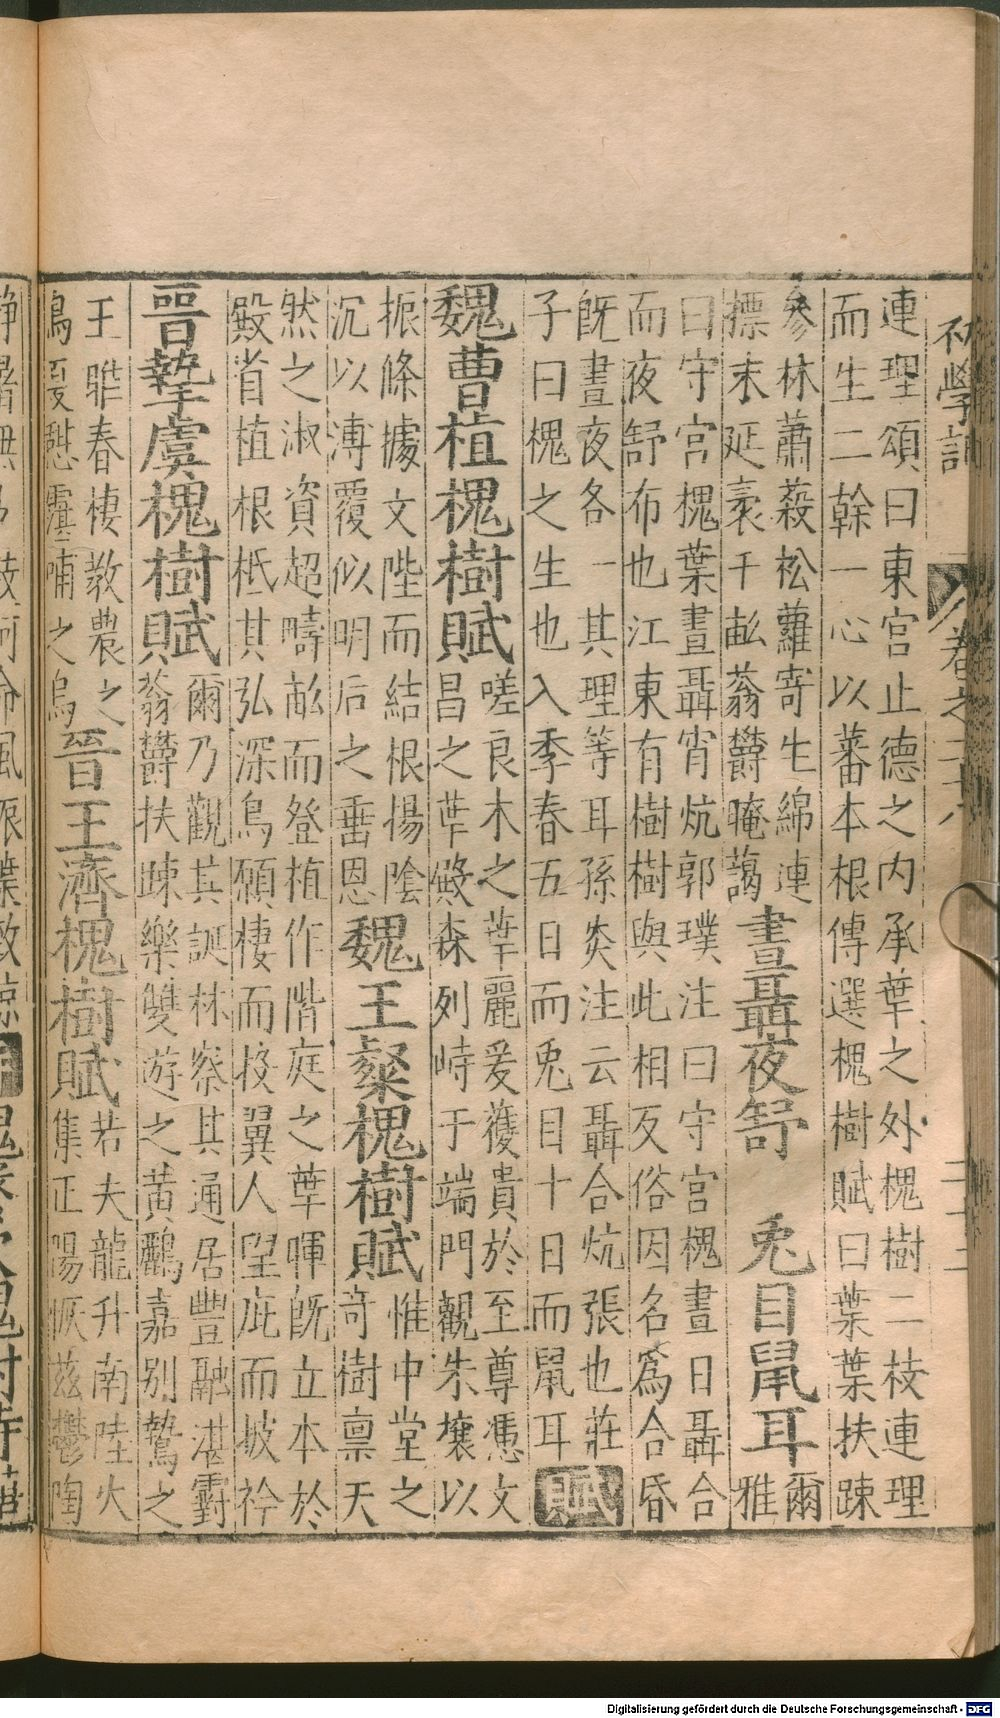 初學記
卷之二十八
二十二
連理頌曰東宮止德之内承華之外槐樹二枝連理
而生二幹一心以蕃本根傳選槐樹賦曰葉葉扶踈
參林蕭蔱松蘿寄生綿連
摽末延袤千畝蓊欝晻藹晝聶夜舒 兎目鼠耳爾
雅
曰守宮槐葉晝聶宵炕郭璞注曰守宮槐晝日聶合
而夜舒布也江東有樹樹與此相反俗因名為合昏
旣晝夜各一其理等耳孫炎注云聶合炕張也莊
子曰槐之生也入季春五日而兎目十日而鼠耳賦
魏曹植槐樹賦嗟良木之華麗爰獲貴於至尊憑文
昌之華殿森列峙于端門觀朱壤以
振條據文陛而結根揚陰
沉以溥覆似明后之垂恩魏王粲槐樹賦惟中堂之
竒樹禀天
然之淑資超疇畝而登植作階庭之華暉旣立本於
殿省植根柢其弘深鳥願棲而投翼人望庇而披衿
晉摯虞槐樹賦爾乃觀其誕林察其通居豐融湛霨
蓊欝扶踈樂雙游之黄鸝嘉别鷙之
王鵻春棲敎農之
鳥夏憇
喃之鳥晉王濟槐樹賦若夫龍升南陸火
集正陽恢兹鬱陶